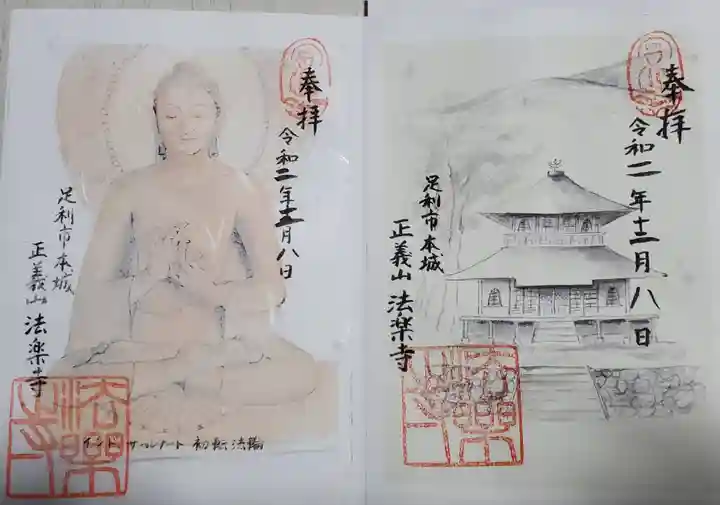 奉拝
令和二年十二月八日
足利市本城
正義山 法楽寺
インド サールナート 初転法輪
法楽寺
奉拝
令和二年十二月八日
足利市本城
正義山 法楽寺
法楽寺